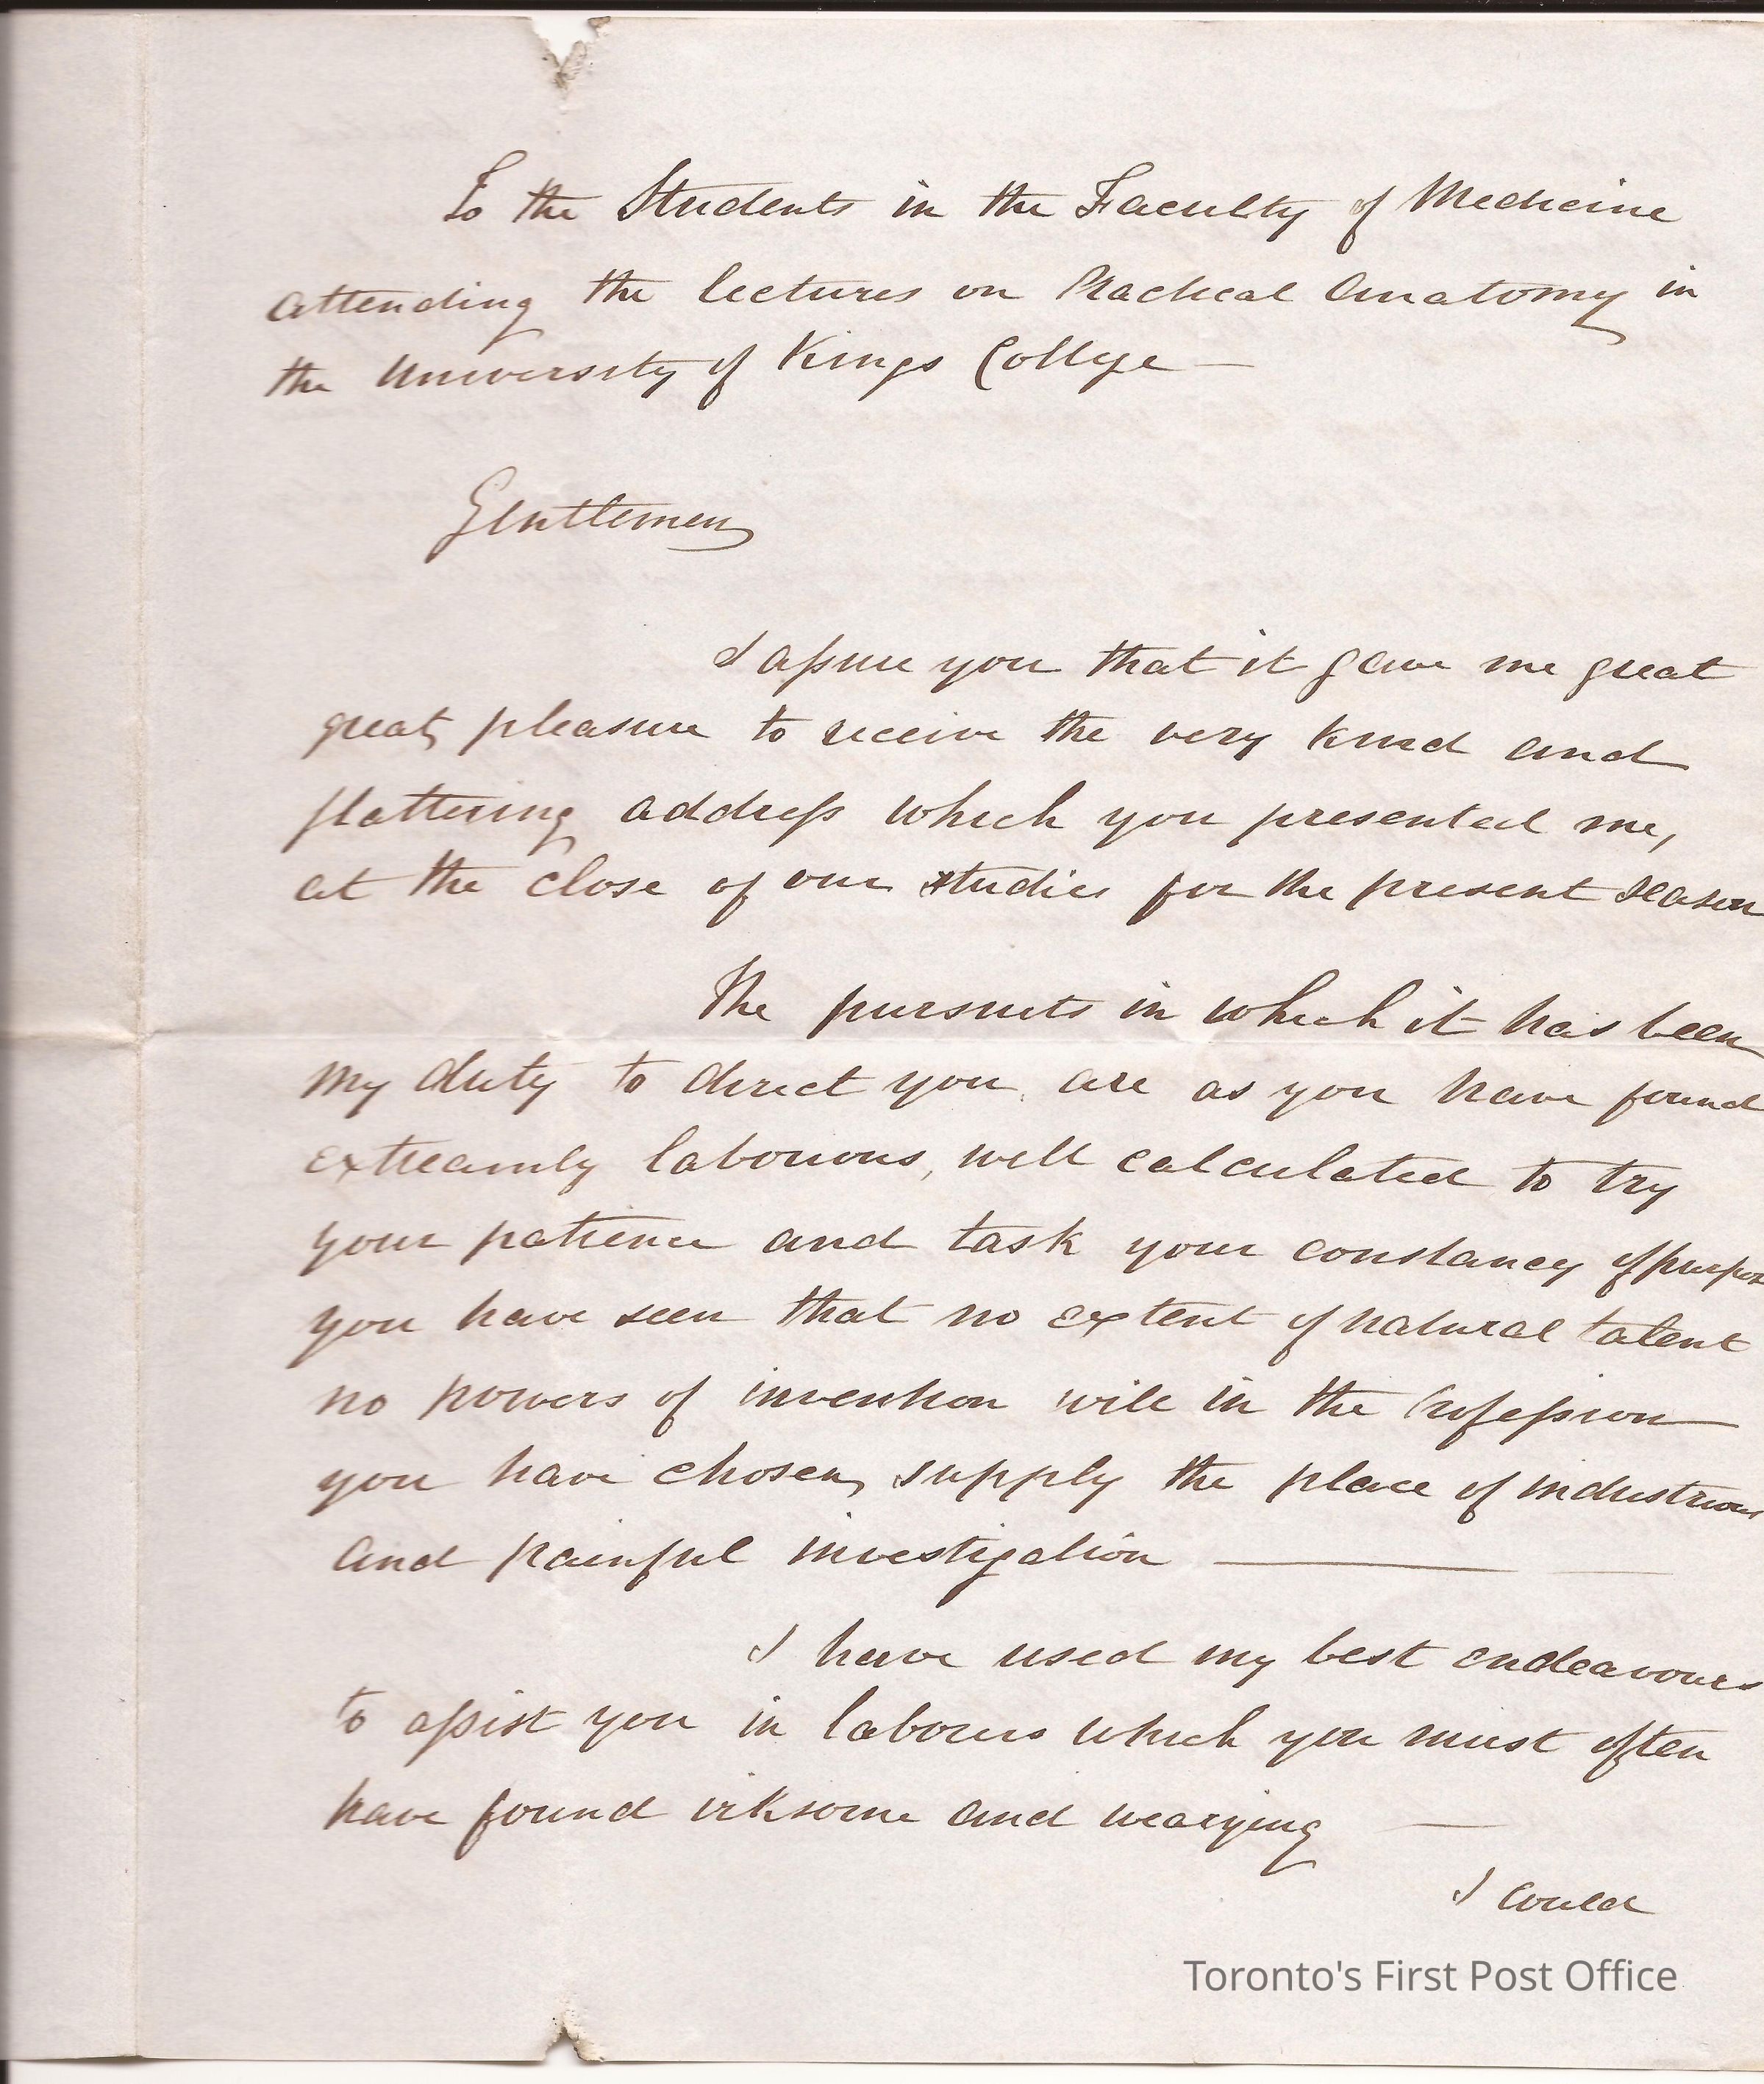 To the Students in the Faculty of Medicine
attending the lectures on Practical Anatomy in
the University of Kings College —
Gentlemen
I assure you that it gave me great
great pleasure to receive the very kind and
flattering address which you presented me,
at the close of our studies for the present season
The pursuits in which it has been
my duty to direct you, are as you have found
extreamly laborious, well calculated to try
your patience and task your constancy of purpose
you have seen that no extent of natural talent
no powers of invention will in the Profession
you have chosen, supply the place of industrious
and painful investigation —
I have used my best endeavours
to assist you in labours which you must often
have found irksome and wearying —
I could
Toronto's First Post Office